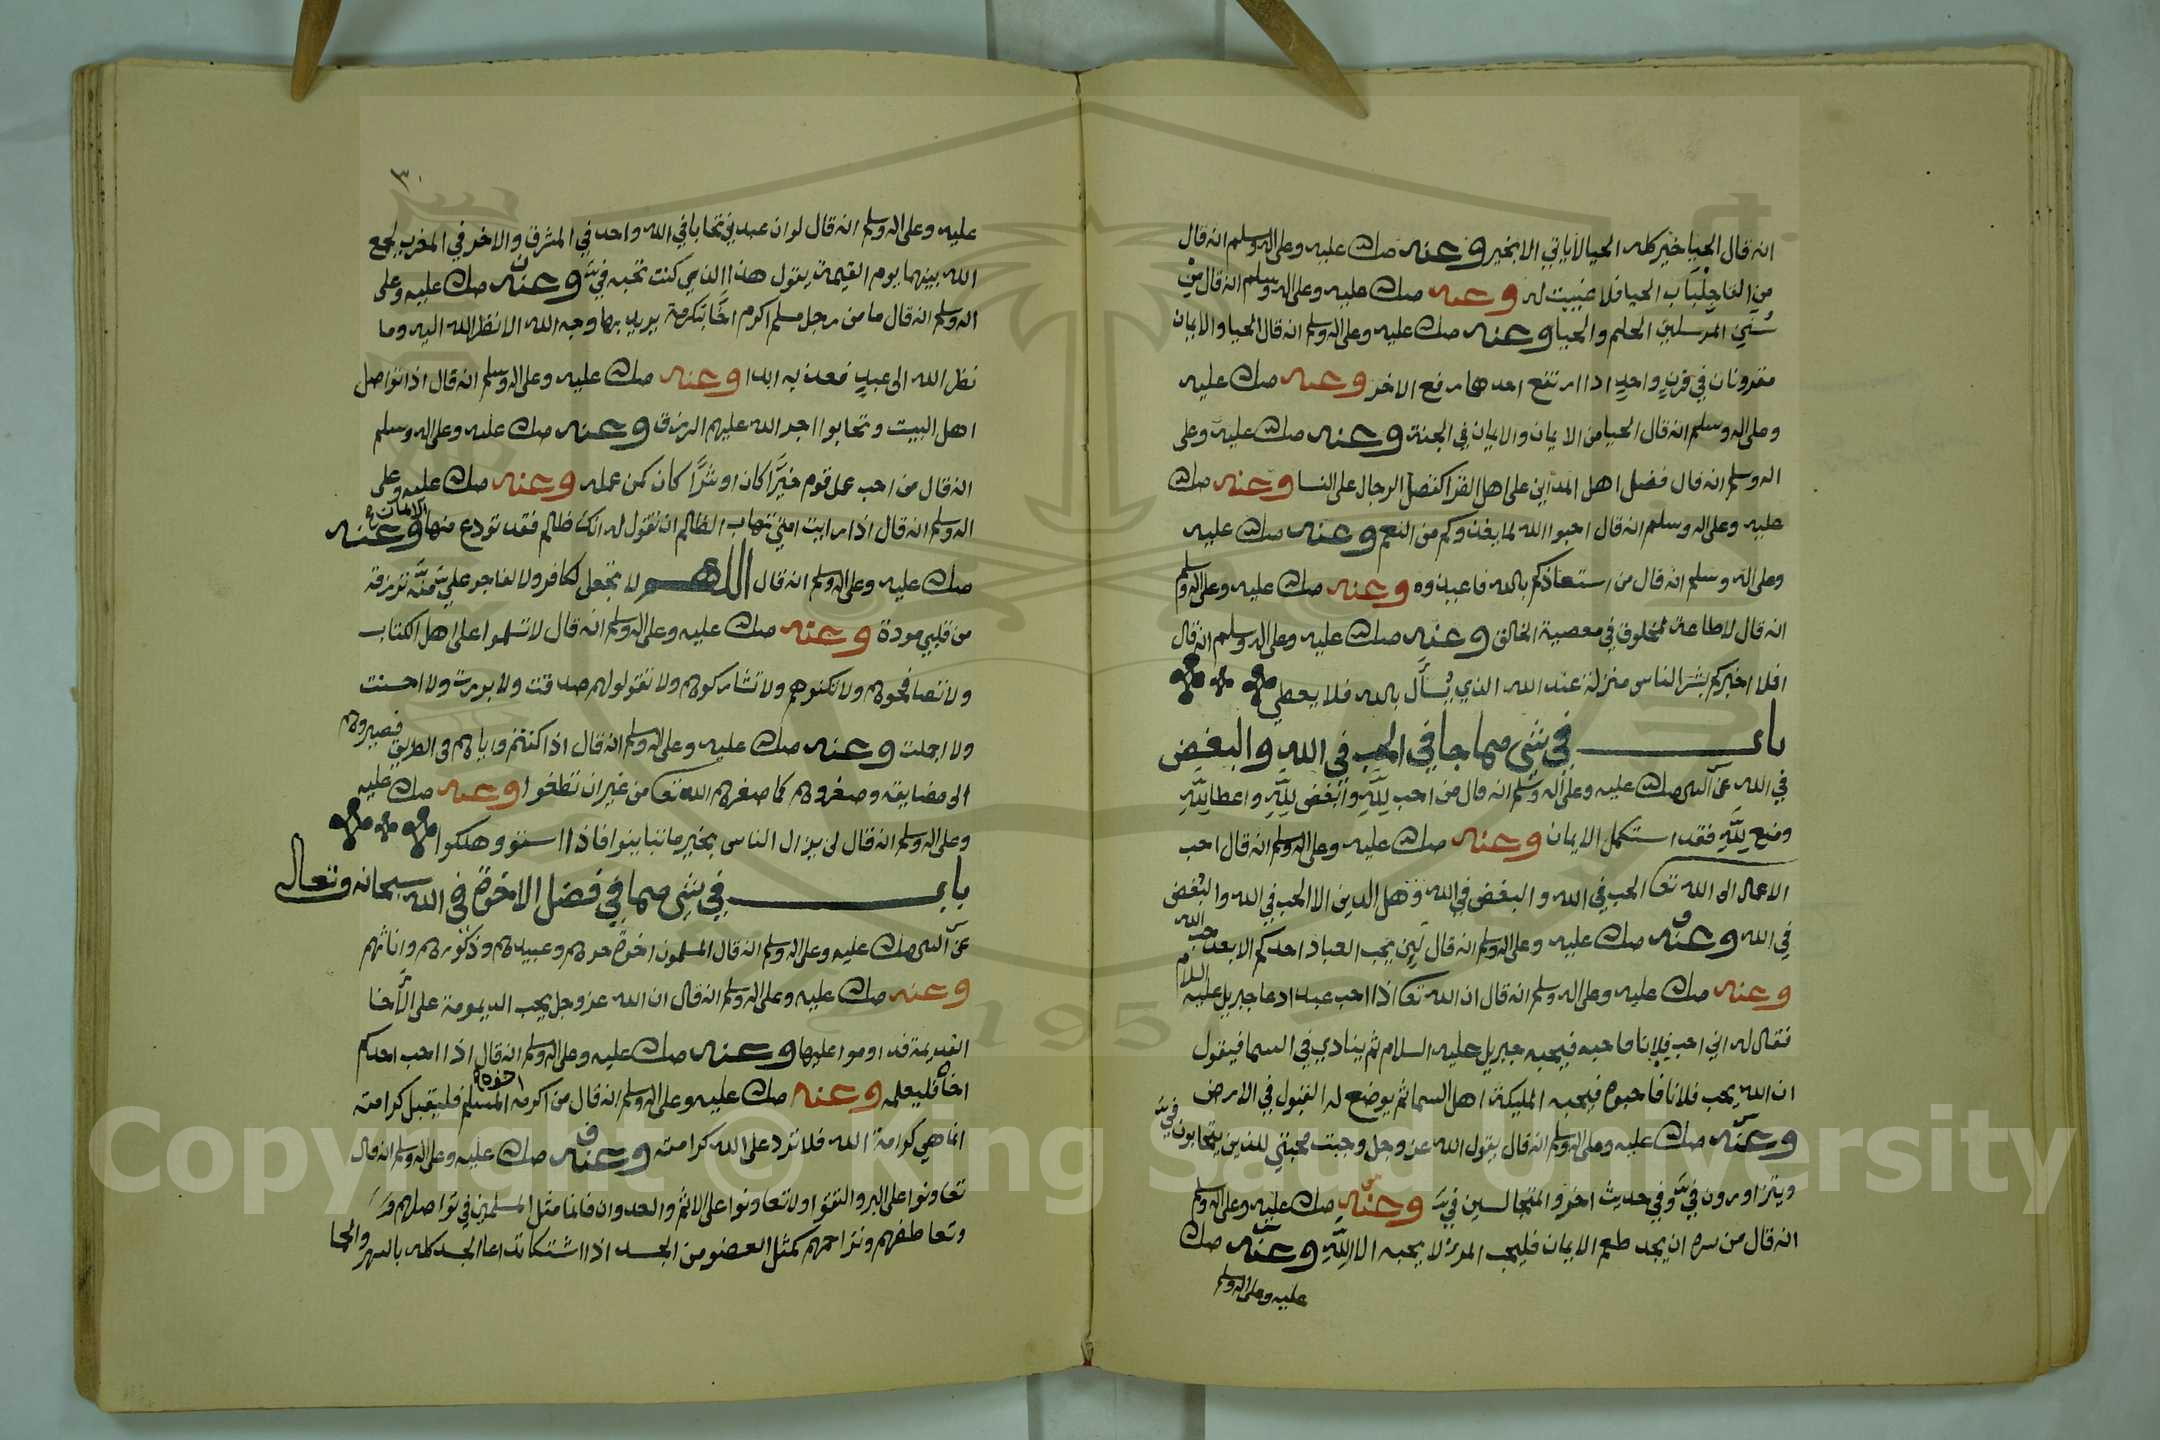 انه قال الحيا خير كله الحيا لا ياتي الا بخير وعنه صلى الله عليه وعلى اله وسلم انه قال
من القا جلباب الحيا فلا غيبت له وعنه صلى الله عليه وعلى اله وسلم انه قال من
سنن المرسلين الحلم والحيا وعنه صلى الله عليه وعلى اله وسلم انه قال الحيا والايمان
مقرونان في قرن واحد اذا ارتفع احدهما رفع الاخر وعنه صلى الله عليه
وعلى اله وسلم انه قال الحيا من الايمان والايمان في الجنة وعنه صلى الله عليه وعلى
اله وسلم انه قال فضل اهل المدآين على اهل القرا كفضل الرجال على النسا وعنه صلى الله
عليه وعلى اله وسلم انه قال احبوا الله لما يغذوكم من النعم وعنه صلى الله عليه
وعلى اله وسلم انه قال من استعاذكم بالله فاعيذوه وعنه صلى الله عليه وعلى اله وسلم
انه قال لا طاعة لمخلوق في معصية الخالق وعنه صلى الله عليه وعلى اله وسلم انه قال
افلا اخبركم بشر الناس منزلة عند الله الذي يُسأل بالله فلا يعطي
باب في شي مما جا في الحب في الله والبغض
في الله عن النبي صلى الله عليه وعلى اله وسلم انه قال من احب لله وابغض لله واعطا لله
ومنع لله فقد استكمل الايمان وعنه صلى الله عليه وعلى اله وسلم انه قال احب
الاعمال الى الله تعا الحب في الله والبغض في الله وهل الدين الا الحب في الله والبغض
في الله وعنه صلى الله عليه وعلى اله وسلم انه قال لن يحب العباد احدكم الا بعد حب الله
وعنه صلى الله عليه وعلى اله وسلم انه قال ان الله تعا اذا احب عبدا دعا جبريل عليه السلام
فقال له اني احب فلانا فاحبه فيحبه جبريل عليه السلام ثم ينادي في السما فيقول
ان الله يحب فلانا فاحبوه فيحبه المليكة اهل السما ثم يوضع له القبول في الارض
وعنه صلى الله عليه وعلى اله وسلم انه قال يقول الله عز وجل وجبت محبتي للذين يتحابون فيَّ
ويتزاورون فيَّ وفي حديث اخر والمتجالسين فيَّ وعنه صلى الله عليه وعلى اله وسلم
انه قال من سره ان يجد طعم الايمان فليحب المرء لا يحبه الا لله وعنه صلى الله
عليه وعلى اله وسلم
٣٠
عليه وعلى اله وسلم انه قال لو ان عبدين تحابا في الله واحد في المشرق والاخر في المغرب لجمع
الله بينهما يوم القيمة يقول هذا الذي كنت تحبه فيَّ وعنه صلى الله عليه وعلى
اله وسلم انه قال ما من رجل مسلم اكرم اخًا بتكرمة يريد بها وجه الله الا نظر الله اليه وما
نظر الله الى عبد فعذبه ابدا وعنه صلى الله عليه وعلى اله وسلم انه قال اذا تواصل
اهل البيت وتحابوا اجرا الله عليهم الرزق وعنه صلى الله عليه وعلى اله وسلم
انه قال من احب عمل قوم خيرًا كان او شرًا كان كمن عمله وعنه صلى الله عليه وعلى
اله وسلم انه قال اذا رايت امتي تهاب الظالم ان تقول له انك ظالم فقد تودع منها وعنه
صلى الله عليه وعلى اله وسلم انه قال اللهم لا تجعل لكافر ولا لفاجر علي منّة ترزقه
من قلبي مودة وعنه صلى الله عليه وعلى اله وسلم انه قال لا تسلموا على اهل الكتاب
ولا تصافحوهم ولا تكنوهم ولا تشاركوهم ولا تقولوا لهم صدقت ولا بررت ولا احسنت
ولا اجملت وعنه صلى الله عليه وعلى اله وسلم انه قال اذا كنتم واياهم في الطريق فصيروهم
الى مضايقه وصغروهم كما صغرهم الله تعا من غير ان تظلموا وعنه صلى الله عليه
وعلى اله وسلم انه قال لن يزال الناس بخير ما تباينوا فاذا استوو هلكوا
باب في شي مما في فضل الاخوة في الله سبحانه وتعالى
عن النبي صلى الله عليه وعلى اله وسلم انه قال المسلمون اخوة حرهم وعبيدهم وذكورهم واناثهم
وعنه صلى الله عليه وعلى اله وسلم انه قال ان الله عز وجل يحب الديمومة على الأخا
القديمة فداوموا عليها وعنه صلى الله عليه وعلى اله وسلم انه قال اذا احب احدكم
اخاه فليعلمه وعنه صلى الله عليه وعلى اله وسلم انه قال من اكرمه اخوه المسلم فليقبل كرامته
انما هي كرامة الله فلا ترد على الله كرامته وعنه صلى الله عليه وعلى اله وسلم انه قال
تعاونوا على البر والتقوا ولا تعاونوا على الاثم والعدوان فانما مثل المسلمين في تواصلهم
وتعاطفهم وتراحمهم كمثل العضو من الجسد اذا اشتكا تداعا الجسد كله بالسهر والحما
Copyright © King Saud University
1957